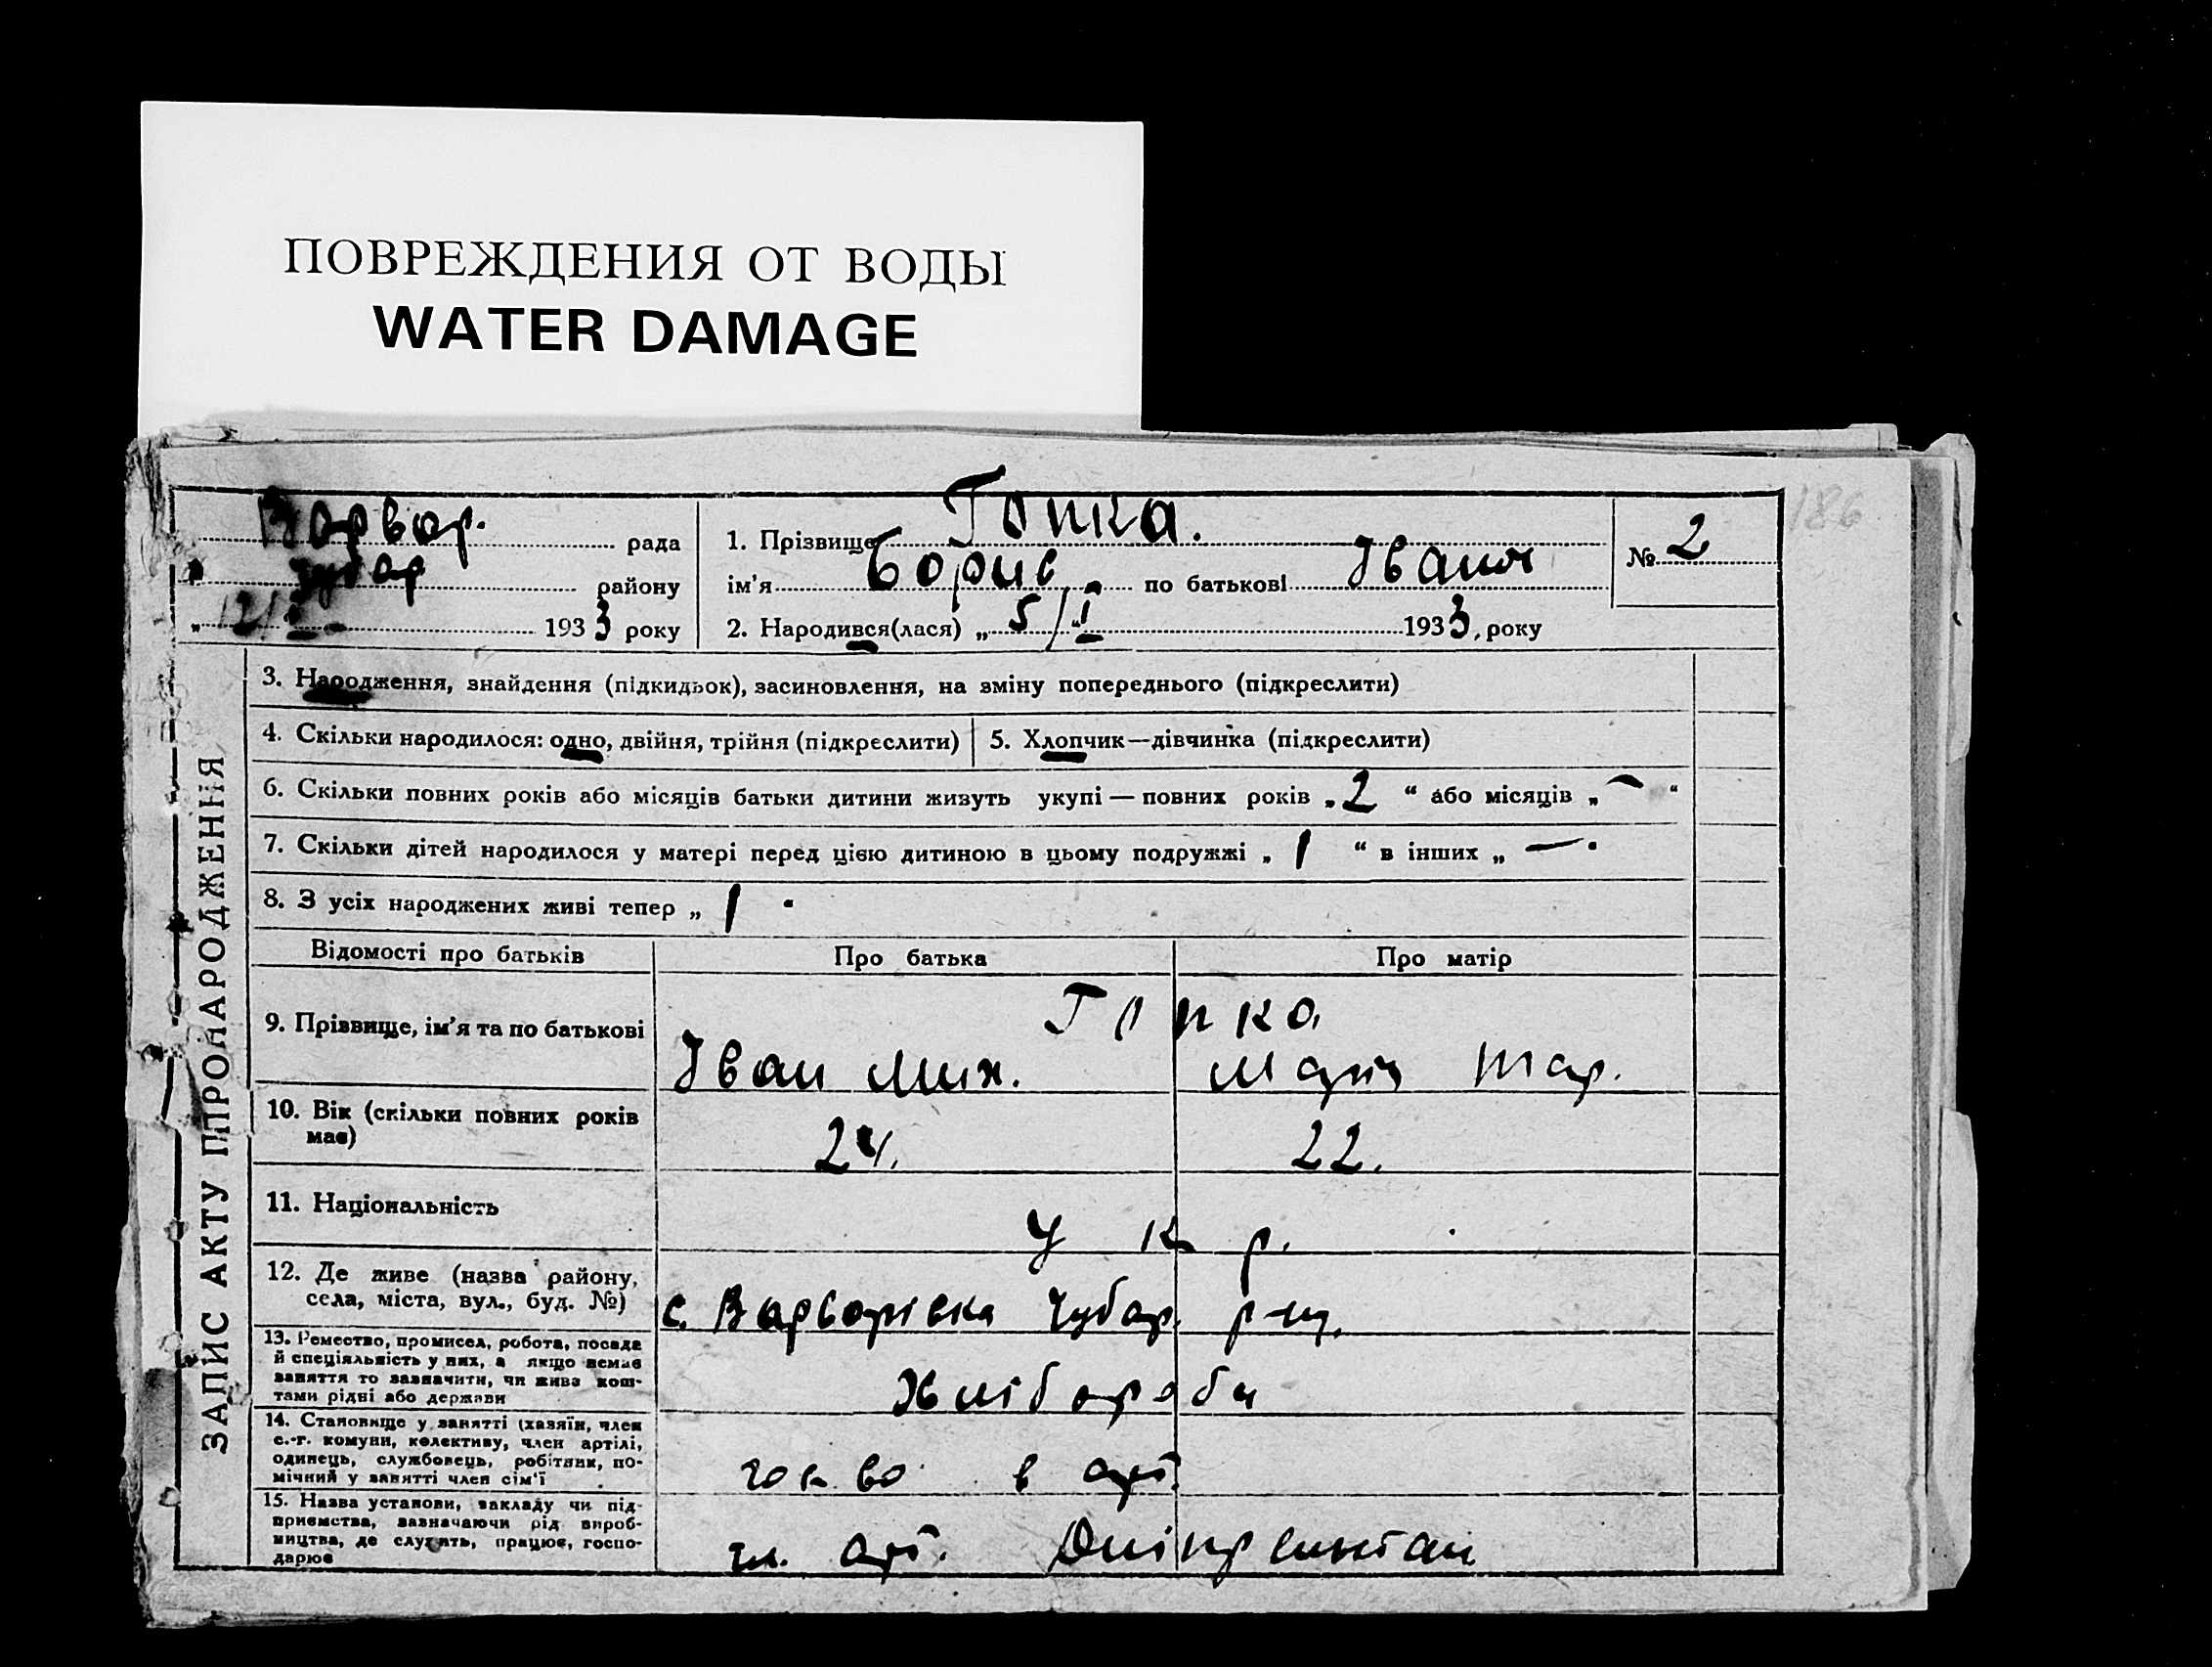 ПОВРЕЖДЕНИЯ ОТ ВОДЫ
WATER DAMAGE
186
Варвар. рада
Чубар району
„ 12/I 1933 року
1. Прізвище Гопка.
ім’я Борис по батькові Іванов
2. Народився(лася) „ 5/I 1933, року
№ 2
ЗАПИС АКТУ ПРО НАРОДЖЕННЯ
3. Народження, знайдення (підкидьок), засиновлення, на зміну попереднього (підкреслити)
4. Скільки народилося: одно, двійня, трійня (підкреслити)
5. Хлопчик—дівчинка (підкреслити)
6. Скільки повних років або місяців батьки дитини живуть укупі — повних років „ 2 “ або місяців „ — “
7. Скільки дітей народилося у матері перед цією дитиною в цьому подружжі „ 1 “ в інших „ — “
8. З усіх народжених живі тепер „ 1 “
Відомості про батьків Про батька Про матір
9. Прізвище, ім’я та по батькові
Гопка
Іван Мих. Марія Тар.
10. Вік (скільки повних років має)
24. 22.
11. Національність
Укр.
12. Де живе (назва району,
села, міста, вул., буд. №)
с. Варварівка Чубар. р-ну.
13. Ремество, промисел, робота, посада
й спеціяльність у них, а якщо немає
заняття то зазначити, чи живе кош-
тами рідні або держави
Хлібороби
14. Становище у занятті (хазяїн, член
с.-г. комуни, колективу, член артілі,
одинець, службовець, робітник, по-
мічний у занятті член сім’ї
в арт.
15. Назва установи, закладу чи під-
приємства, зазначаючи рід вироб-
ництва, де служить, працює, госпо-
дарює
чл. арт.